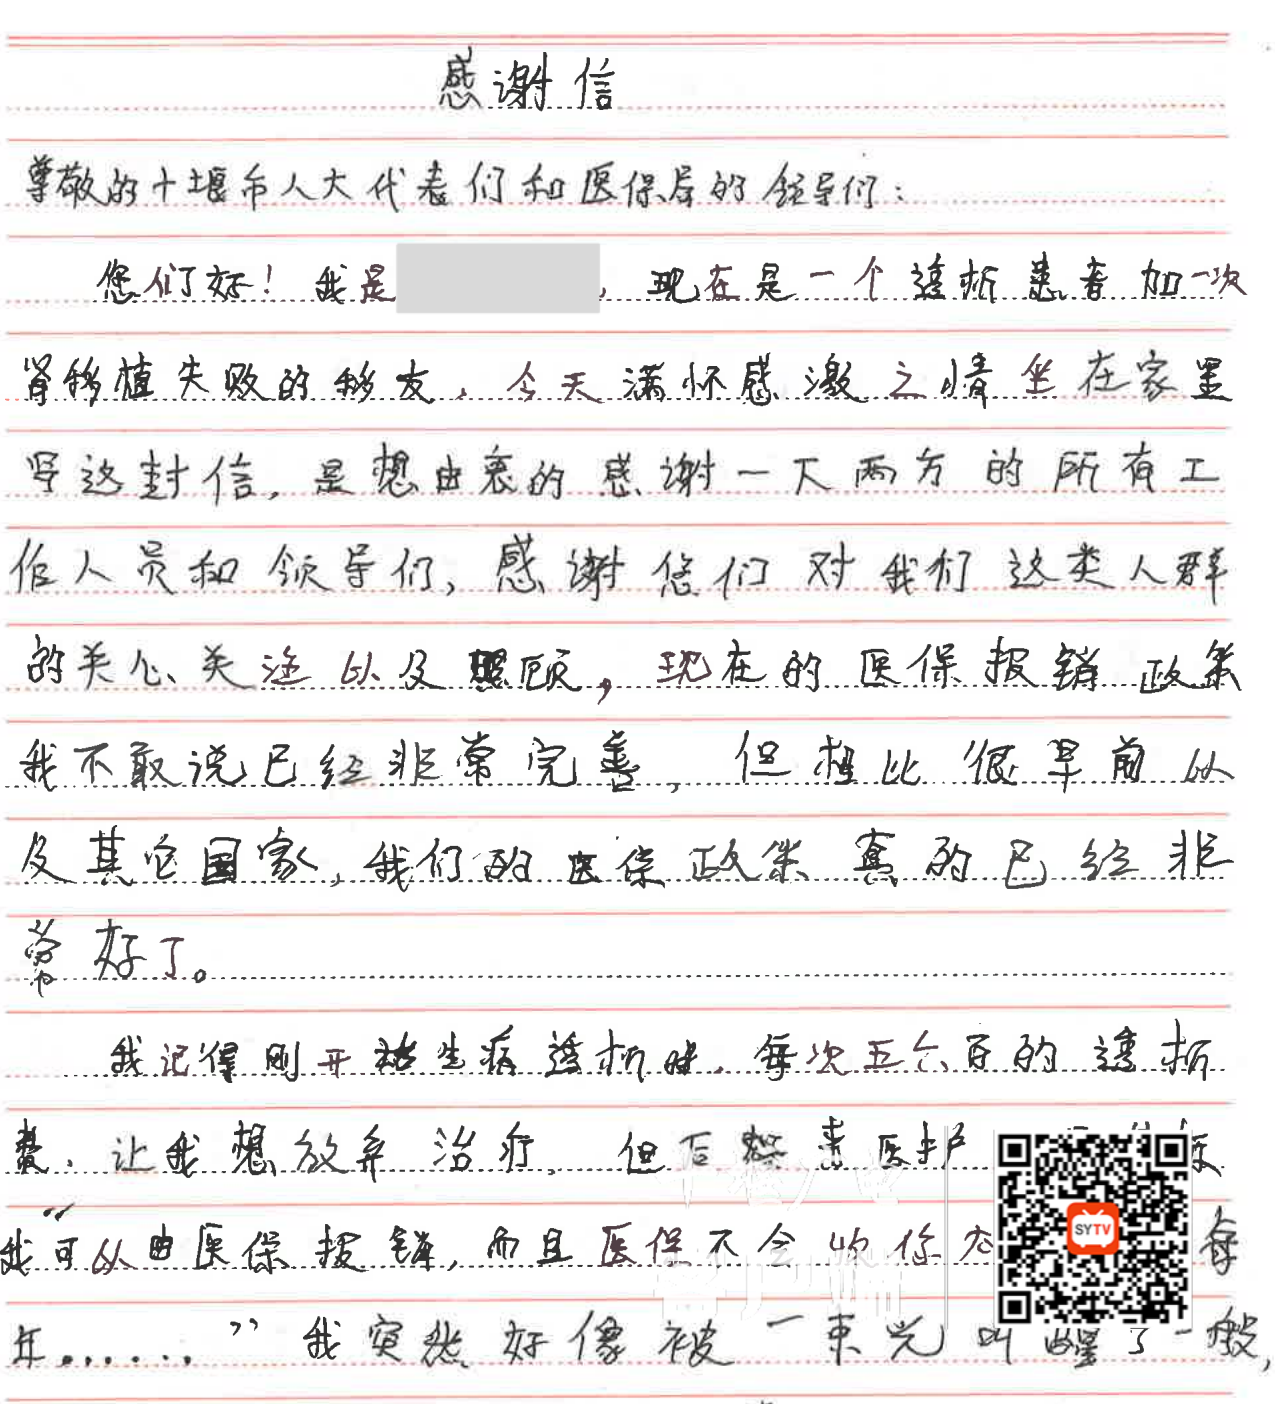 感谢信
尊敬的十堰市人大代表们和医保局的领导们：
您们好！我是 ，现在是一个透析患者加一次
肾移植失败的移友，今天满怀感激之情坐在家里
写这封信，是想由衷的感谢一下两方的所有工
作人员和领导们，感谢您们对我们这类人群
的关心关注以及照顾，现在的医保报销政策
我不敢说已经非常完善，但相比很早前以
及其它国家，我们的医保政策真的已经非
常好了。
我记得刚开始生病透析时，每次五六百的透析
费，让我想放弃治疗，但后来医护
我“可以由医保报销，而且医保不会收你 每
SYTV
年......”我突然好像被一束光叫醒了一般，